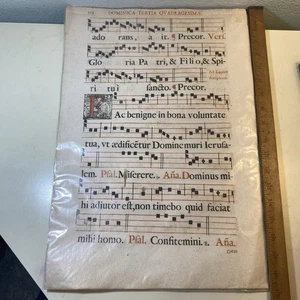 DOMINICA TERTIA QVADRAGESIMÆ
ado rans, a it. ¶ Precor. Vers.
Glo ria Patri, & Filio, & Spi
Ad Laudes
ri tui sancto. ¶ Precor.
Fac benigne in bona voluntate
tua, vt ædificẽtur Domine muri Ierusa
lem. Psal. Miserere. Aña. Dominus mi
hi adiutor est, non timebo quid faciat
mihi homo. Psal. Confitemini. Aña.